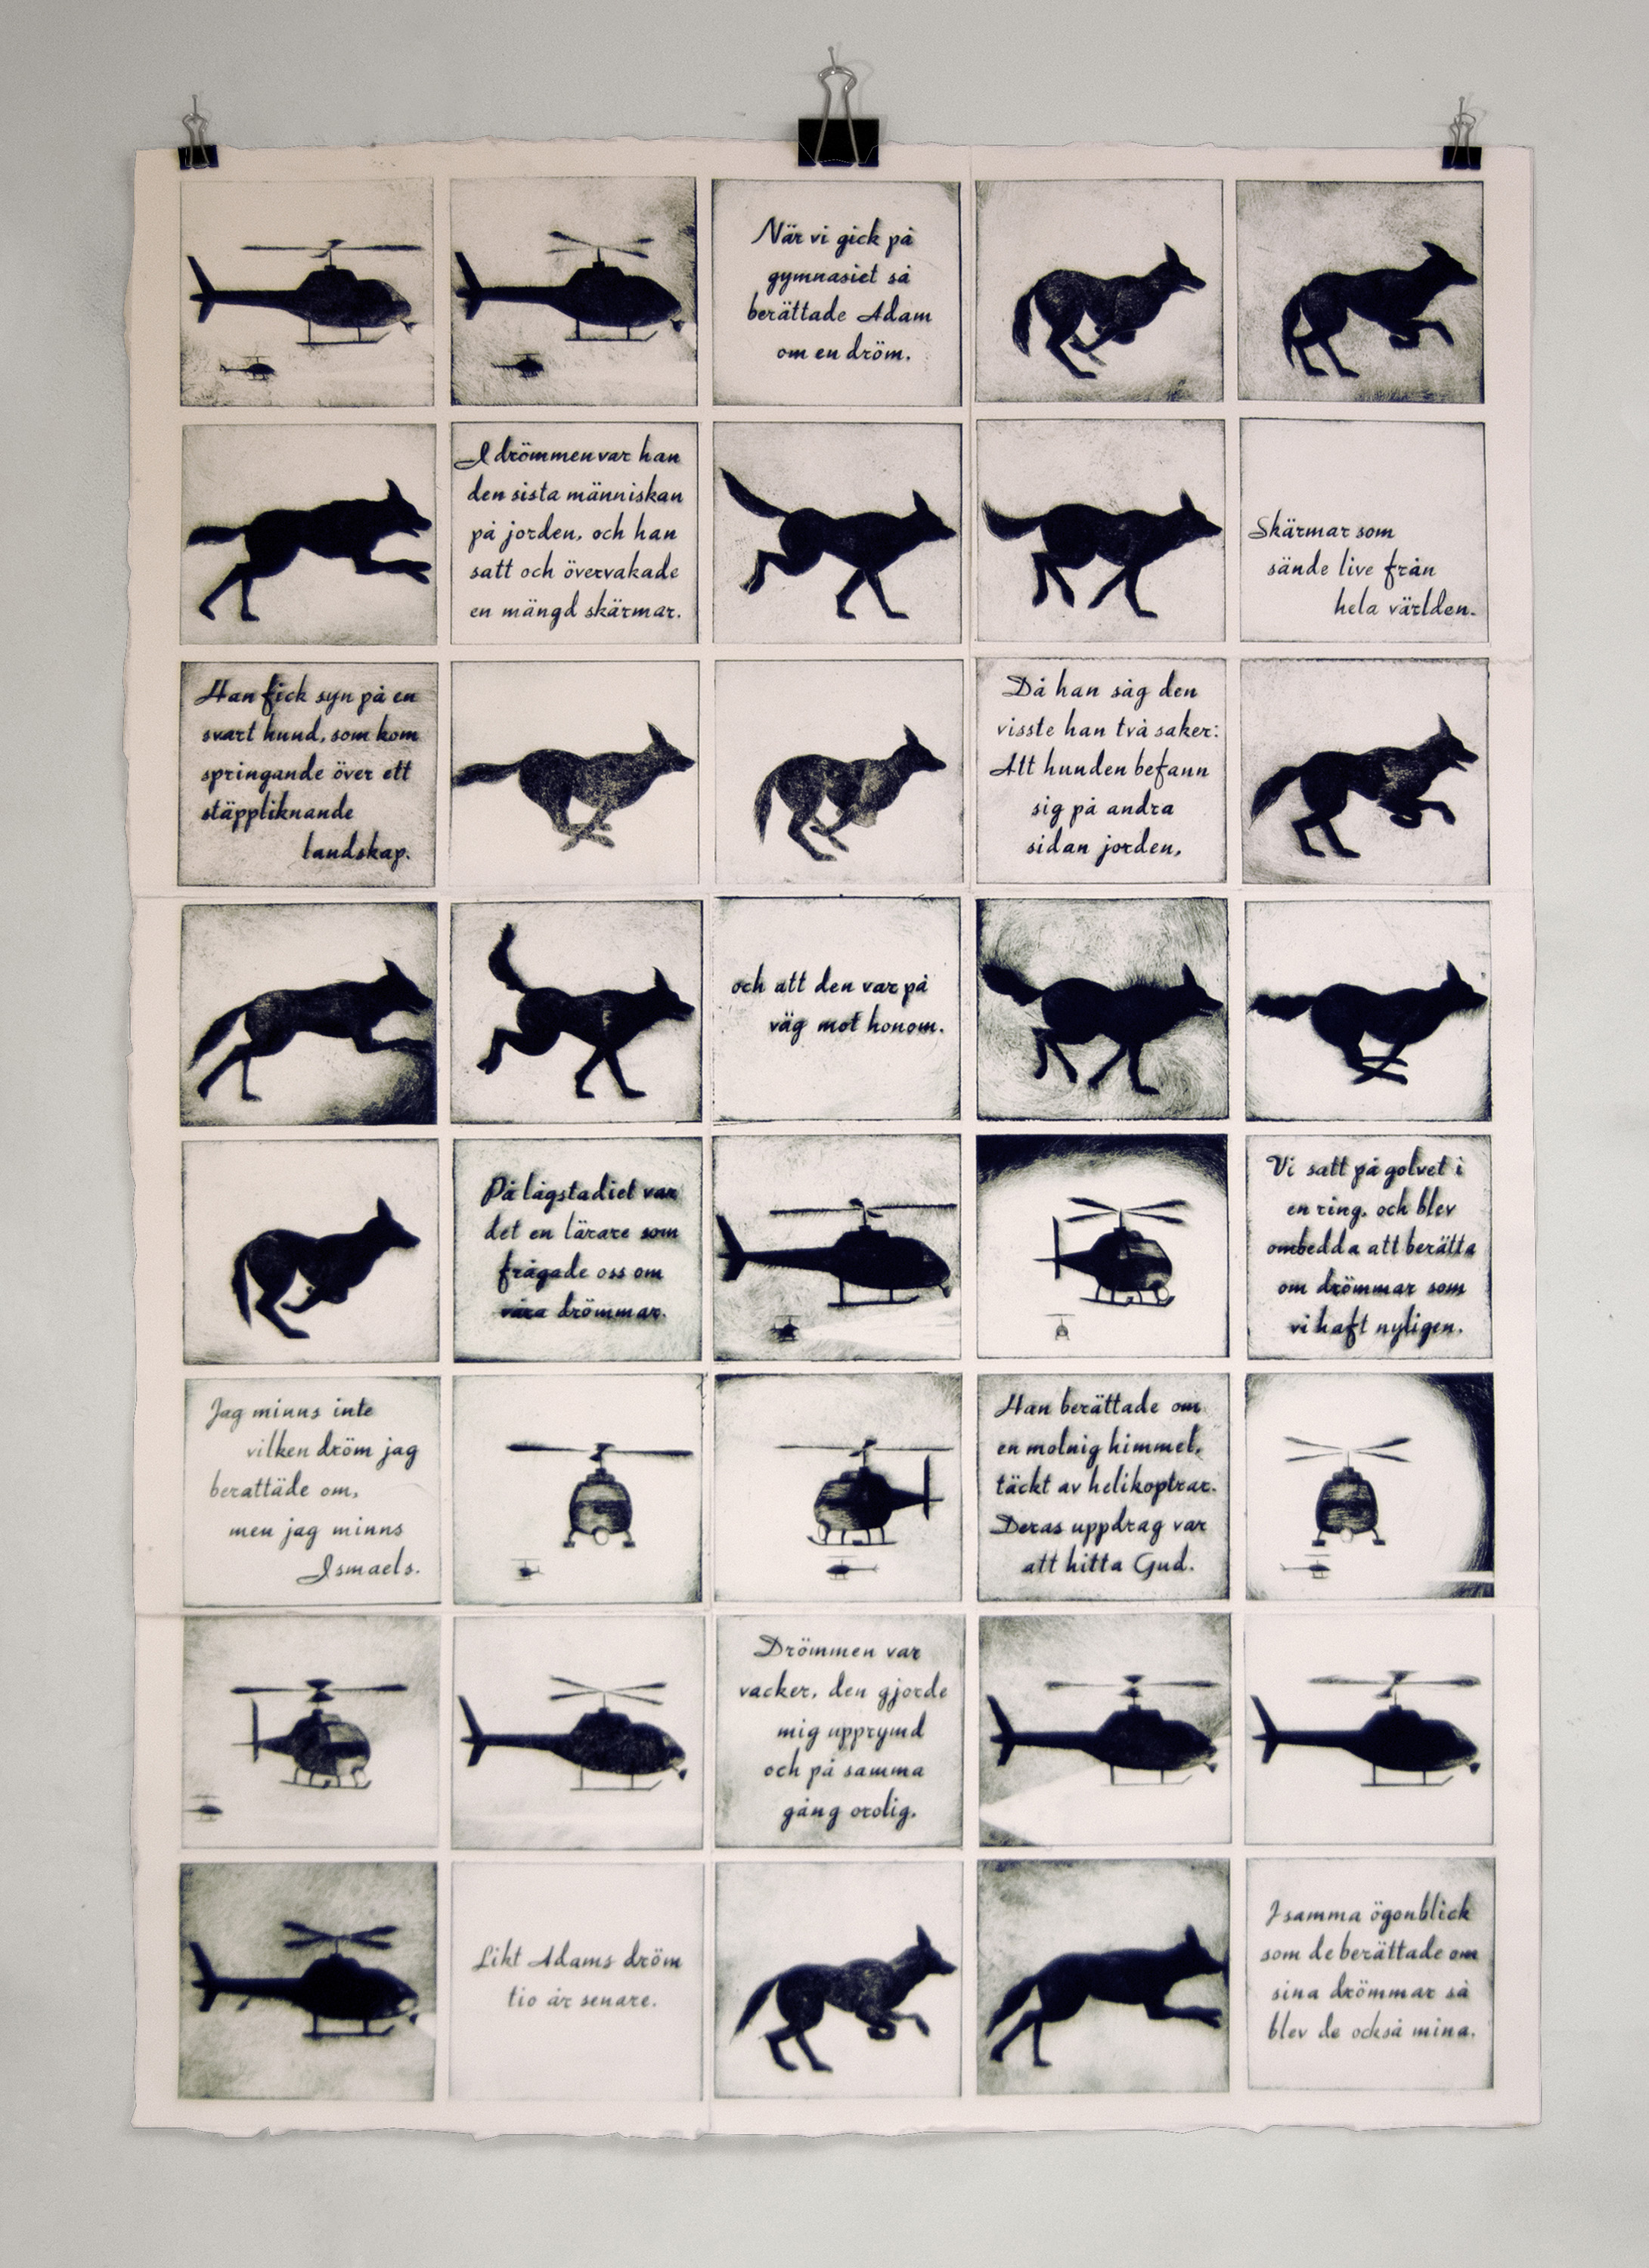 När vi gick på
gymnasiet så
berättade Adam
om en dröm.
I drömmen var han
den sista människan
på jorden, och han
satt och övervakade
en mängd skärmar.
Skärmar som
sände live från
hela världen.
Han fick syn på en
svart hund, som kom
springande över ett
stäppliknande
landskap.
Då han såg den
visste han två saker:
Att hunden befann
sig på andra
sidan jorden,
och att den var på
väg mot honom.
På lågstadiet var
det en lärare som
frågade oss om
våra drömmar.
Vi satt på golvet i
en ring, och blev
ombedda att berätta
om drömmar som
vi haft nyligen.
Jag minns inte
vilken dröm jag
berattäde om,
men jag minns
Ismaels.
Han berättade om
en molnig himmel,
täckt av helikoptrar.
Deras uppdrag var
att hitta Gud.
Drömmen var
vacker, den gjorde
mig upprymd
och på samma
gång orolig.
Likt Adams dröm
tio år senare.
I samma ögonblick
som de berättade om
sina drömmar så
blev de också mina.